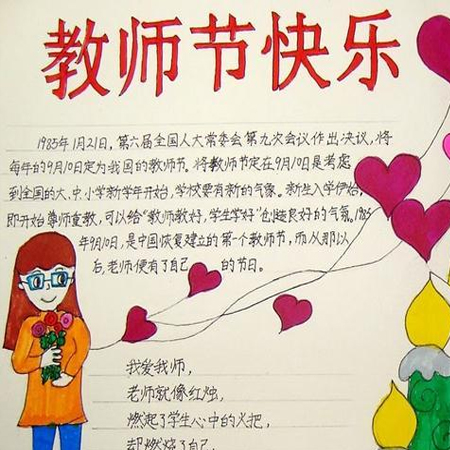 教师节快乐
1985年1月21日，第六届全国人大常委会第九次会议作出决议，将
每年的9月10日定为我国的教师节。将教师节定在9月10日是考虑
到全国的大、中、小学新学年开始，学校要有新的气象。新生入学伊始，
即开始尊师重教，可以给"教师教好，学生学好"创造良好的气氛。1985
年9月10日，是中国恢复建立的第一个教师节，而从那以
后，老师便有了自己的节日。
我爱我师，
老师就像红烛，
燃起了学生心中的火把，
却燃烧了自己，